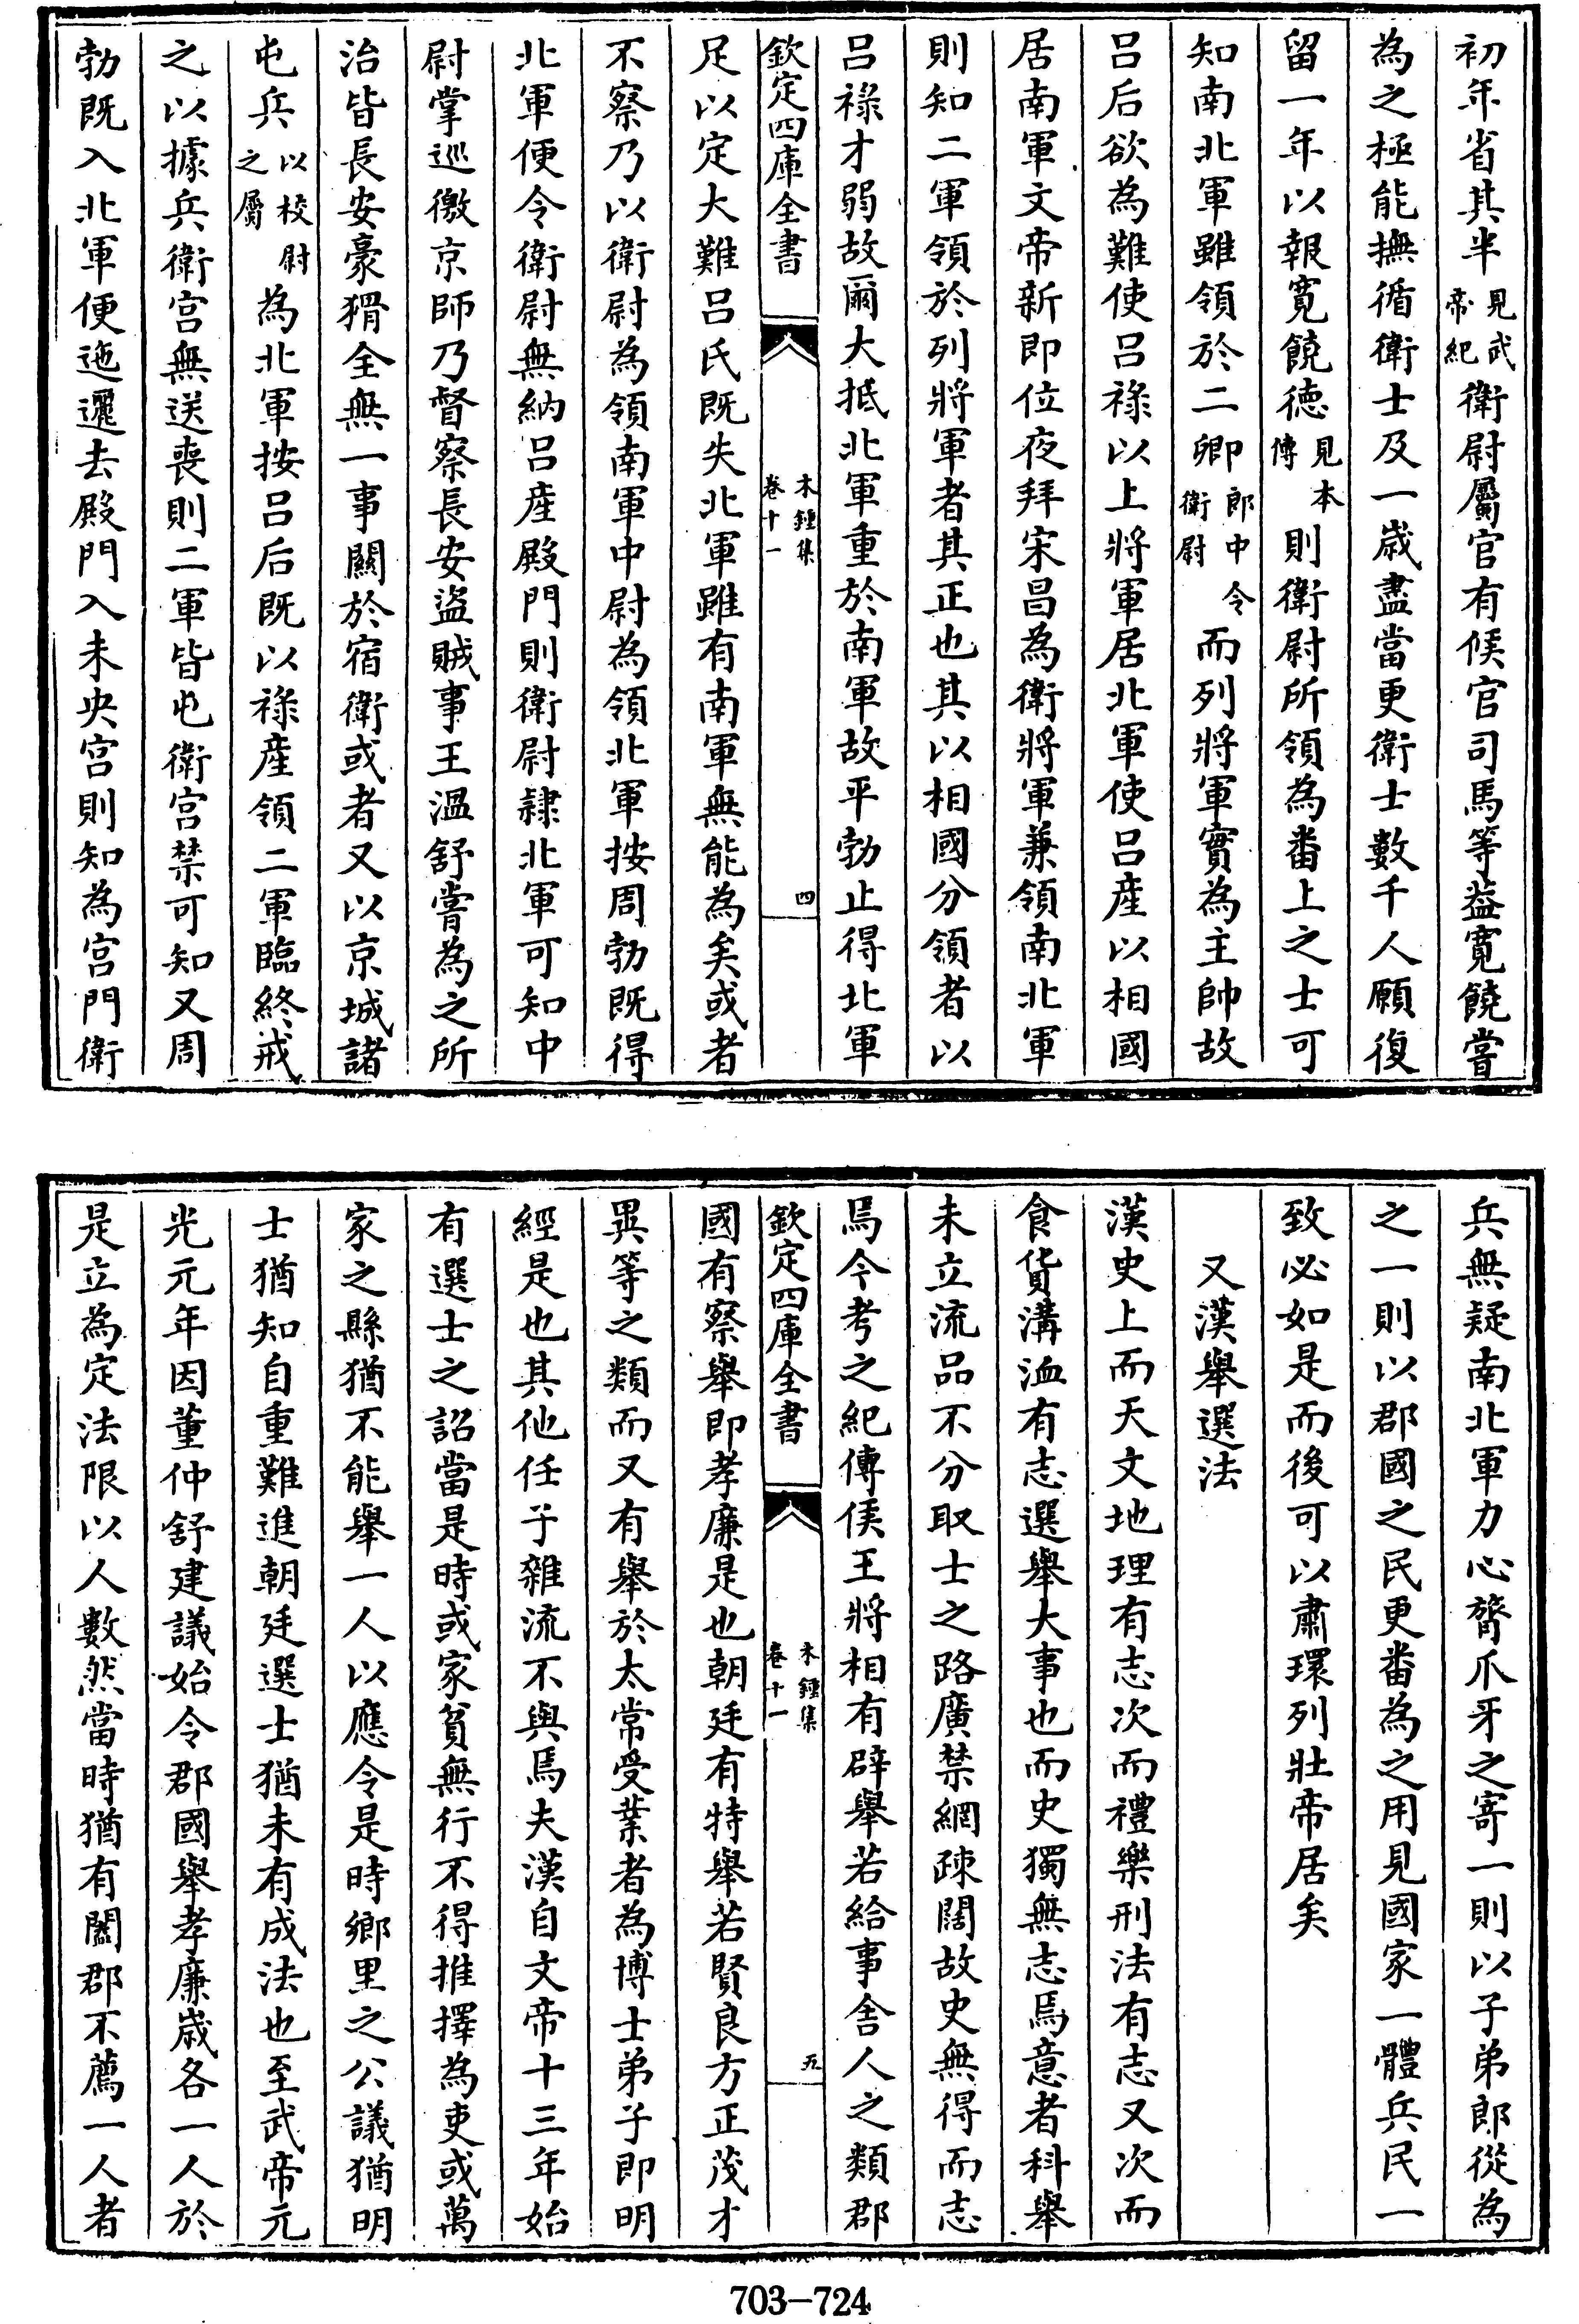 初年省其半見武帝紀衛尉屬官有候官司馬等葢寛饒嘗
為之極能撫循衛士及一歲盡當更衛士數千人願復
留一年以報寛饒徳見本傳則衛尉所領為畨上之士可
知南北軍雖領於二卿郎中令衛尉而列將軍實為主帥故
吕后欲為難使吕祿以上將軍居北軍使吕産以相國
居南軍文帝新即位夜拜宋昌為衛將軍兼領南北軍
則知二軍領於列將軍者其正也其以相國分領者以
吕祿才弱故爾大抵北軍重於南軍故平勃止得北軍
欽定四庫全書
木鍾集
卷十一
四
足以定大難吕氏既失北軍雖有南軍無能為矣或者
不察乃以衛尉為領南軍中尉為領北軍按周勃既得
北軍便令衛尉無納吕産殿門則衛尉隸北軍可知中
尉掌巡徼京師乃督察長安盜賊事王溫舒嘗為之所
治皆長安豪猾全無一事關於宿衛或者又以京城諸
屯兵以校尉之屬為北軍按吕后既以祿産領二軍臨終戒
之以據兵衛宫無送喪則二軍皆屯衛宫禁可知又周
勃既入北軍便迤邐去殿門入未央宫則知為宫門衛
兵無疑南北軍力心膂爪牙之寄一則以子弟郎從為
之一則以郡國之民更畨為之用見國家一體兵民一
致必如是而後可以肅環列壯帝居矣
又漢舉選法
漢史上而天文地理有志次而禮樂刑法有志又次而
食貨溝洫有志選舉大事也而史獨無志焉意者科舉
未立流品不分取士之路廣禁網疎闊故史無得而志
焉今考之紀傳侯王將相有辟舉若給事舍人之類郡
欽定四庫全書
木鍾集
卷十一
五
國有察舉即孝廉是也朝廷有特舉若賢良方正茂才
異等之類而又有舉於太常受業者為博士弟子即明
經是也其他任子雜流不與焉夫漢自文帝十三年始
有選士之詔當是時或家貧無行不得推擇為吏或萬
家之縣猶不能舉一人以應令是時鄉里之公議猶明
士猶知自重難進朝廷選士猶未有成法也至武帝元
光元年因董仲舒建議始令郡國舉孝廉歲各一人於
是立為定法限以人數然當時猶有闔郡不薦一人者
703-724